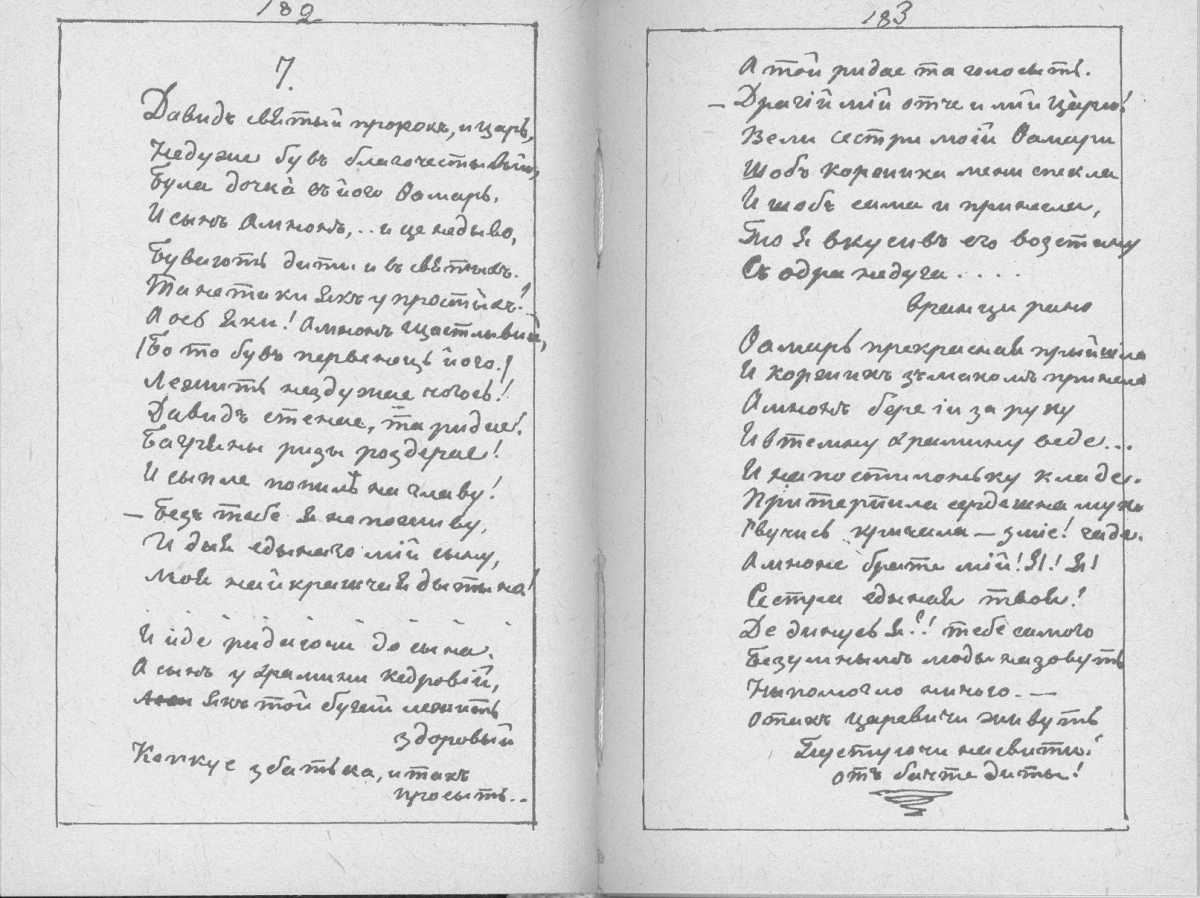 182
7.
Давидъ святый пророкъ, и царь,
Недуже бувъ благочестывый,
Була дочка въ його Ѳамарь.
И сынъ Амнонъ,.. и це недыво,
Бувають диты и въ святыхъ.
Та не таки якъ у простыхъ!
А ось яки! Амнонъ щастлывый,
(Бо то бувъ первенець його.)
Лежить нездужае чогось!
Давидъ стенае, та ридае!
Багряны ризы роздерае!
И сыпле попилъ на главу!
— Безъ тебе я не пожыву,
И дня едынаго мій сыну,
Моя найкращая дытыно!
. . . . . .
И йде ридаючи до сына.
А сынъ у храмини кедровій,
якъ той бугай лежить
здоровый
Кепкуе зъ батька, и такъ
просыть..
183
А той ридае та голосыть.
— Драгій мій отче и мій Царю!
Вели сестри моій Ѳамари
Щобъ коржика мени спекла
И щобъ сама и принесла,
То я вкусивъ его возстану
Съ одра недуга . . . .
вранци рано
Ѳамарь прекрасная прыйшла
И коржикъ зъ макомъ принесла
Амнонъ бере іи за руку
И в темну храмину веде...
И на постилоньку кладе.
Притерпила сердешна муку
Рвучись кричала — зміе! гаде.
Амноне брате мій! Я! Я!
Сестра едыная твоя!
Де динусь я!! тебе самого
Безумнымъ люды назовуть
Ны помогло ничого. —
Отакъ царевичи живуть
Пустуючи на свити!
отъ бачте диты!